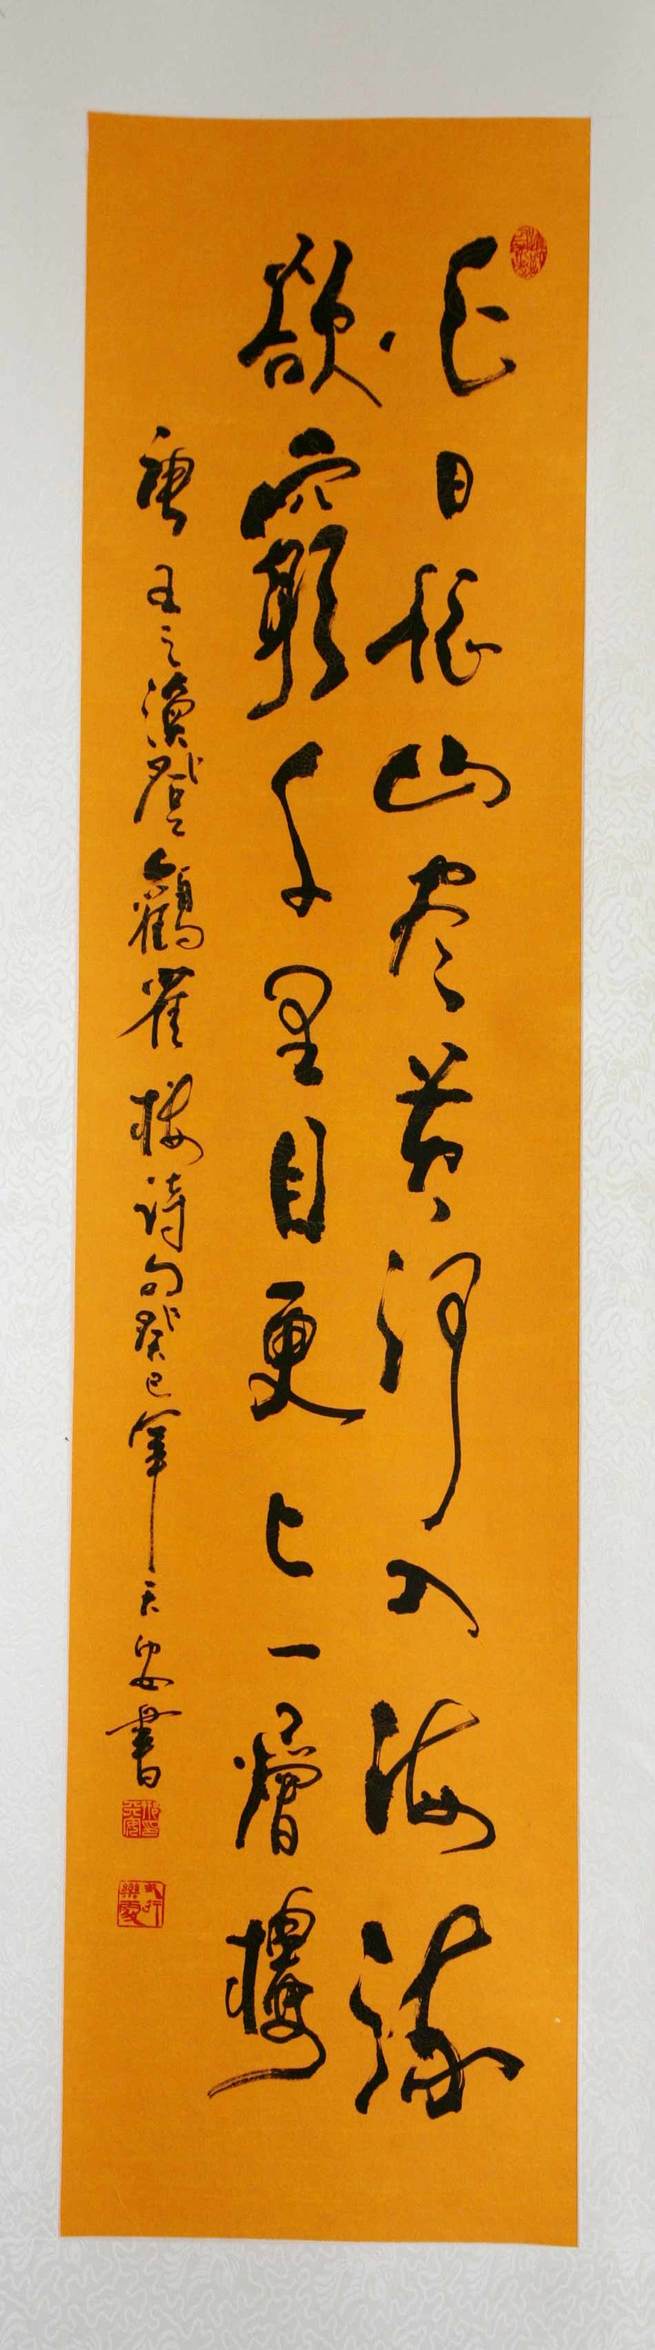 白日依山尽黄河入海流
欲窮千里目更上一層樓
唐王之渙登鸛雀楼詩句癸巳年天安書